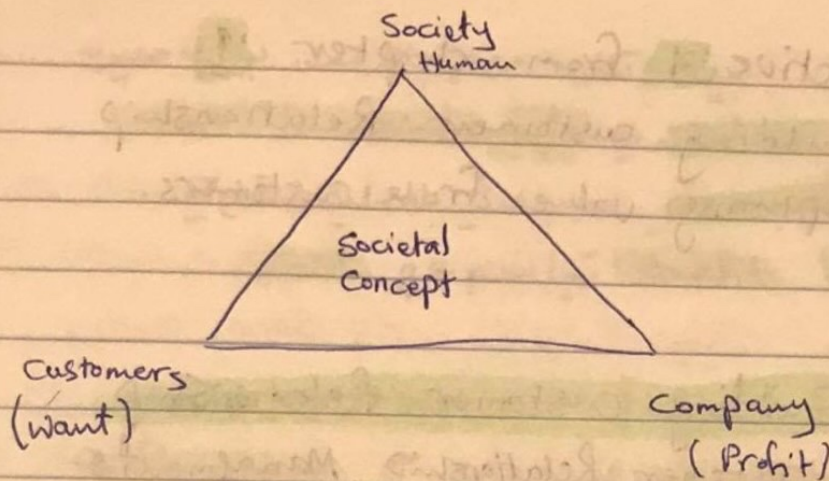 Society
Human
Societal
Concept
Customers
(Want)
Company
(Profit)